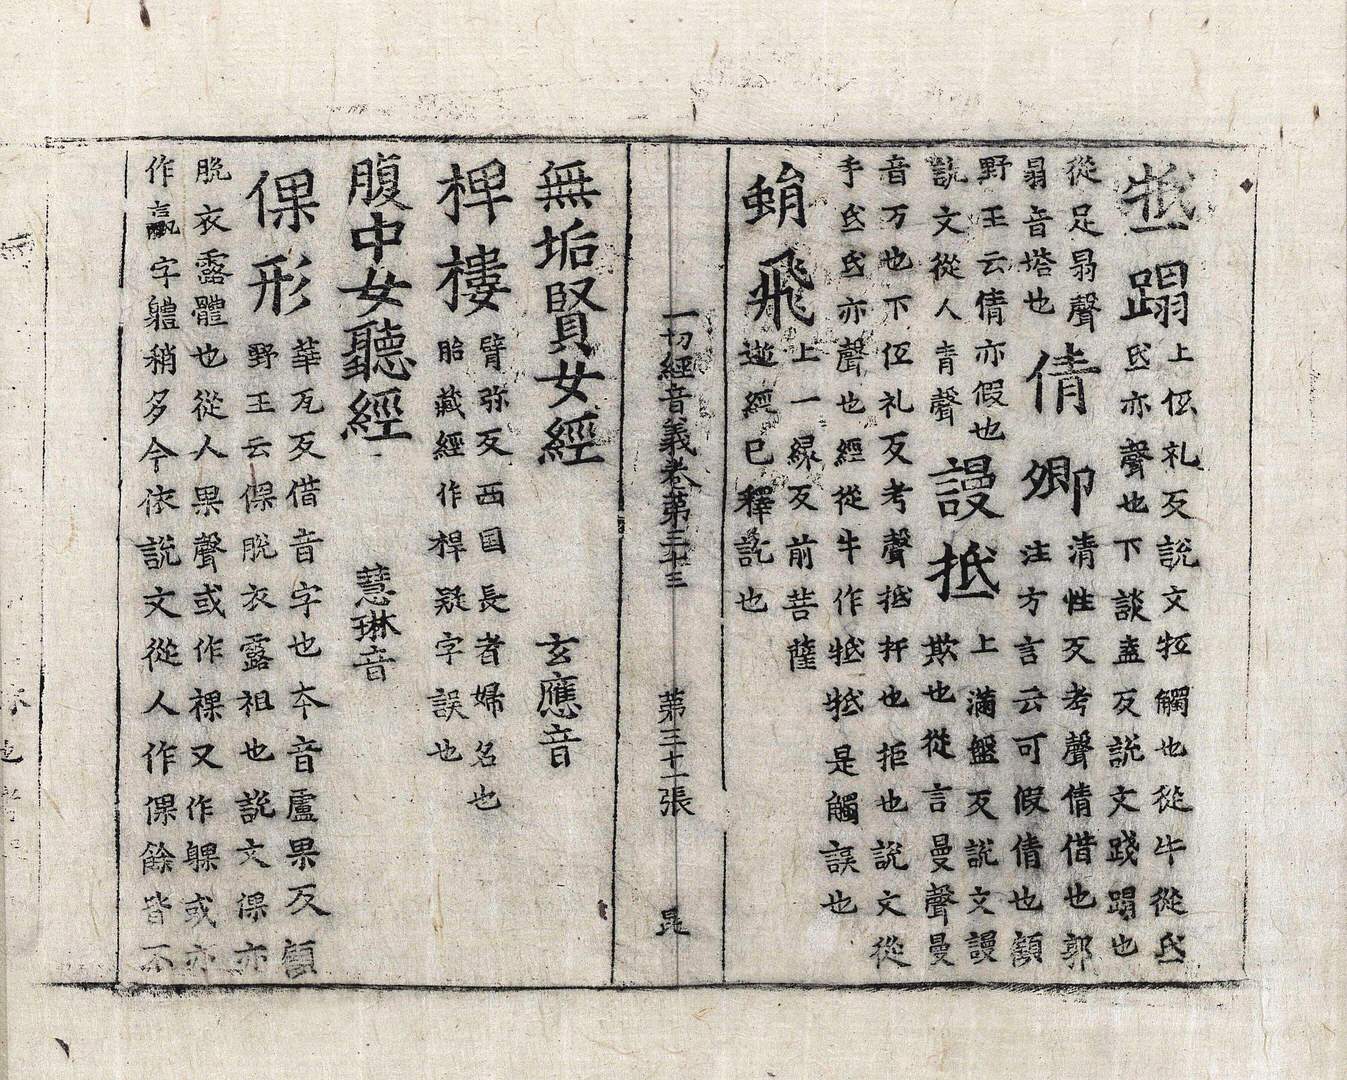 牴蹋上低礼反説文牴觸也從牛從氐
氐亦聲也下談盍反説文踐蹋也
從足㬱聲
㬱音塔也
倩卿清性反考聲倩借也郭
注方言云可假倩也顧
野王云倩亦假也
説文從人青聲
謾抵上滿盤反説文謾
欺也從言曼聲曼
音万也下低礼反考聲抵拒也拒也説文從
手氐氐亦聲也經從牛作牴牴是觸誤也
蜎飛上一緣反前菩薩
遊經已釋訖也
一切經音義卷第三十三 第三十一張 昆
無垢賢女經 玄應音
椑樓臂弥反西国長者婦名也
胎藏經作椑疑字誤也
腹中女聽經 慧琳音
倮形華瓦反借音字也本音盧果反顧
野王云倮脱衣露袒也説文倮亦
脱衣露體也從人果聲或作裸又作躶或亦
作臝字軆稍多今依説文從人作倮餘皆不